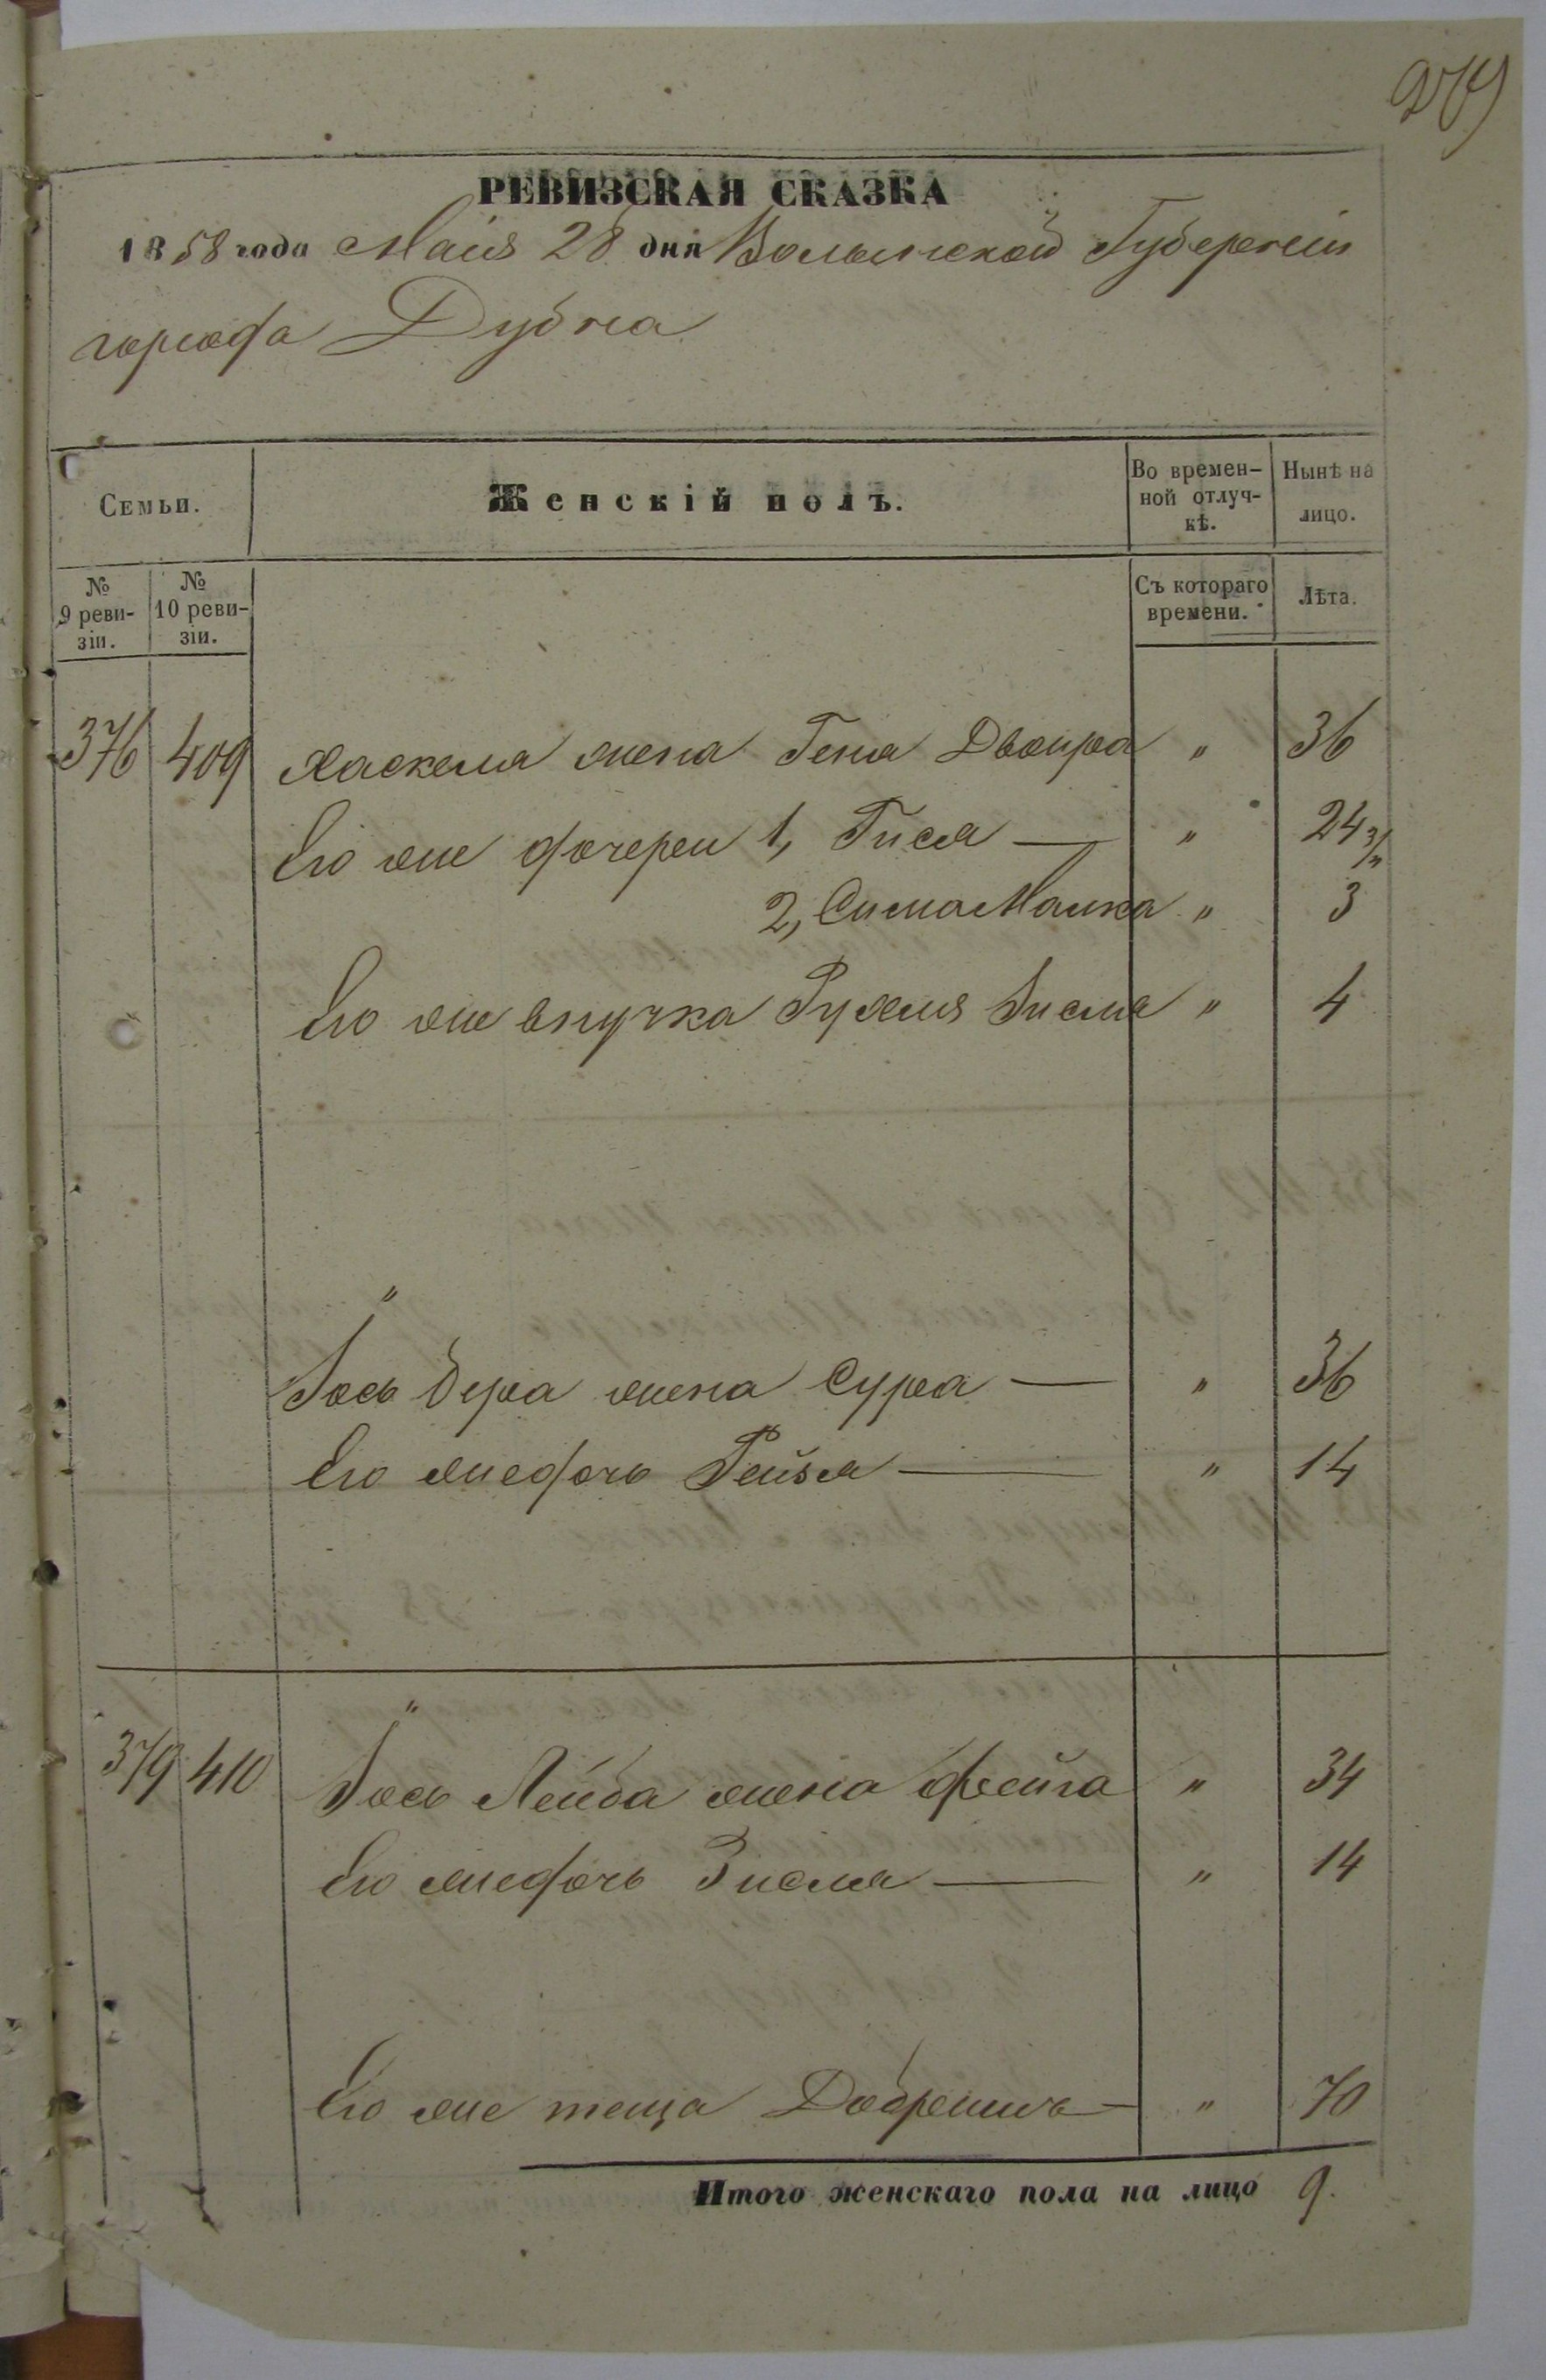 279
РЕВИЗСКАЯ СКАЗКА
1858 года Маія 28 дня Волынской Губерніи
города Дубна
Семьи.
Женскій полъ.
Во времен-
ной отлуч-
кѣ.
Нынѣ на
лицо.
№
9 реви-
зіи.
№
10 реви-
зіи.
Съ котораго
времени.
Лѣта.
376 409 Хаскеля жена Геня Двойра " 36
Его же дочери 1, Гися — " 24 3/м
2, Сима Малка " 3
Его же внучка Рухля " 4
"
Іось Бера жена Сура — " 36
Его же дочь Рейзя — " 14
"
379 410 Іось Лейба жена Фейга " 34
Его же дочь Зисля — " 14
Его же теща Добришъ — " 70
Итого женскаго пола на лицо 9.